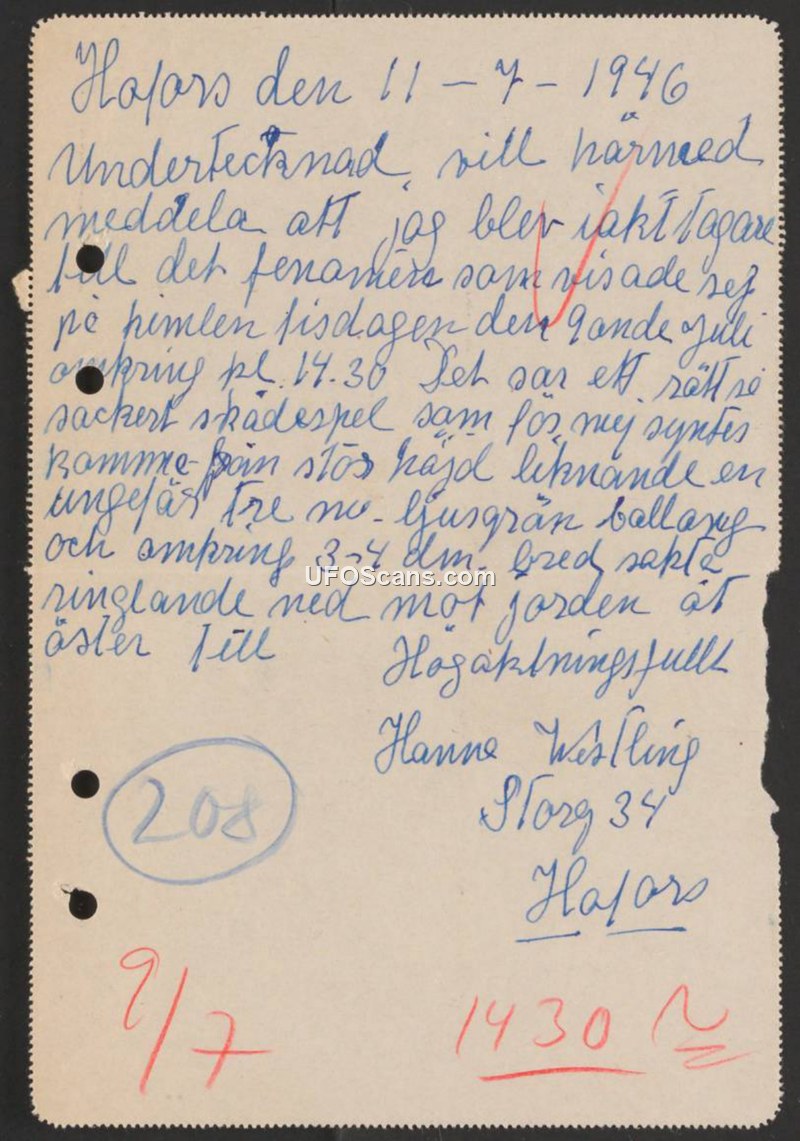 Hofors den 11 - 7 - 1946
Undertecknad, vill härmed
meddela att jag blev iakttagare
till det fenomén som visade sej
på himlen tisdagen den 9ande Juli
omkring kl. 14.30 Det var ett rätt så
vackert skådespel som för mej syntes
komma från stor höjd liknande en
ungefär tre m- ljusgrön ballong
och omkring 3-4 dm. bred sakta
ringlande ned mot jorden åt
öster till
Högaktningsfullt
Hanna Wistling
Storg 34
Hofors
208
9/7
1430
UFOScans.com